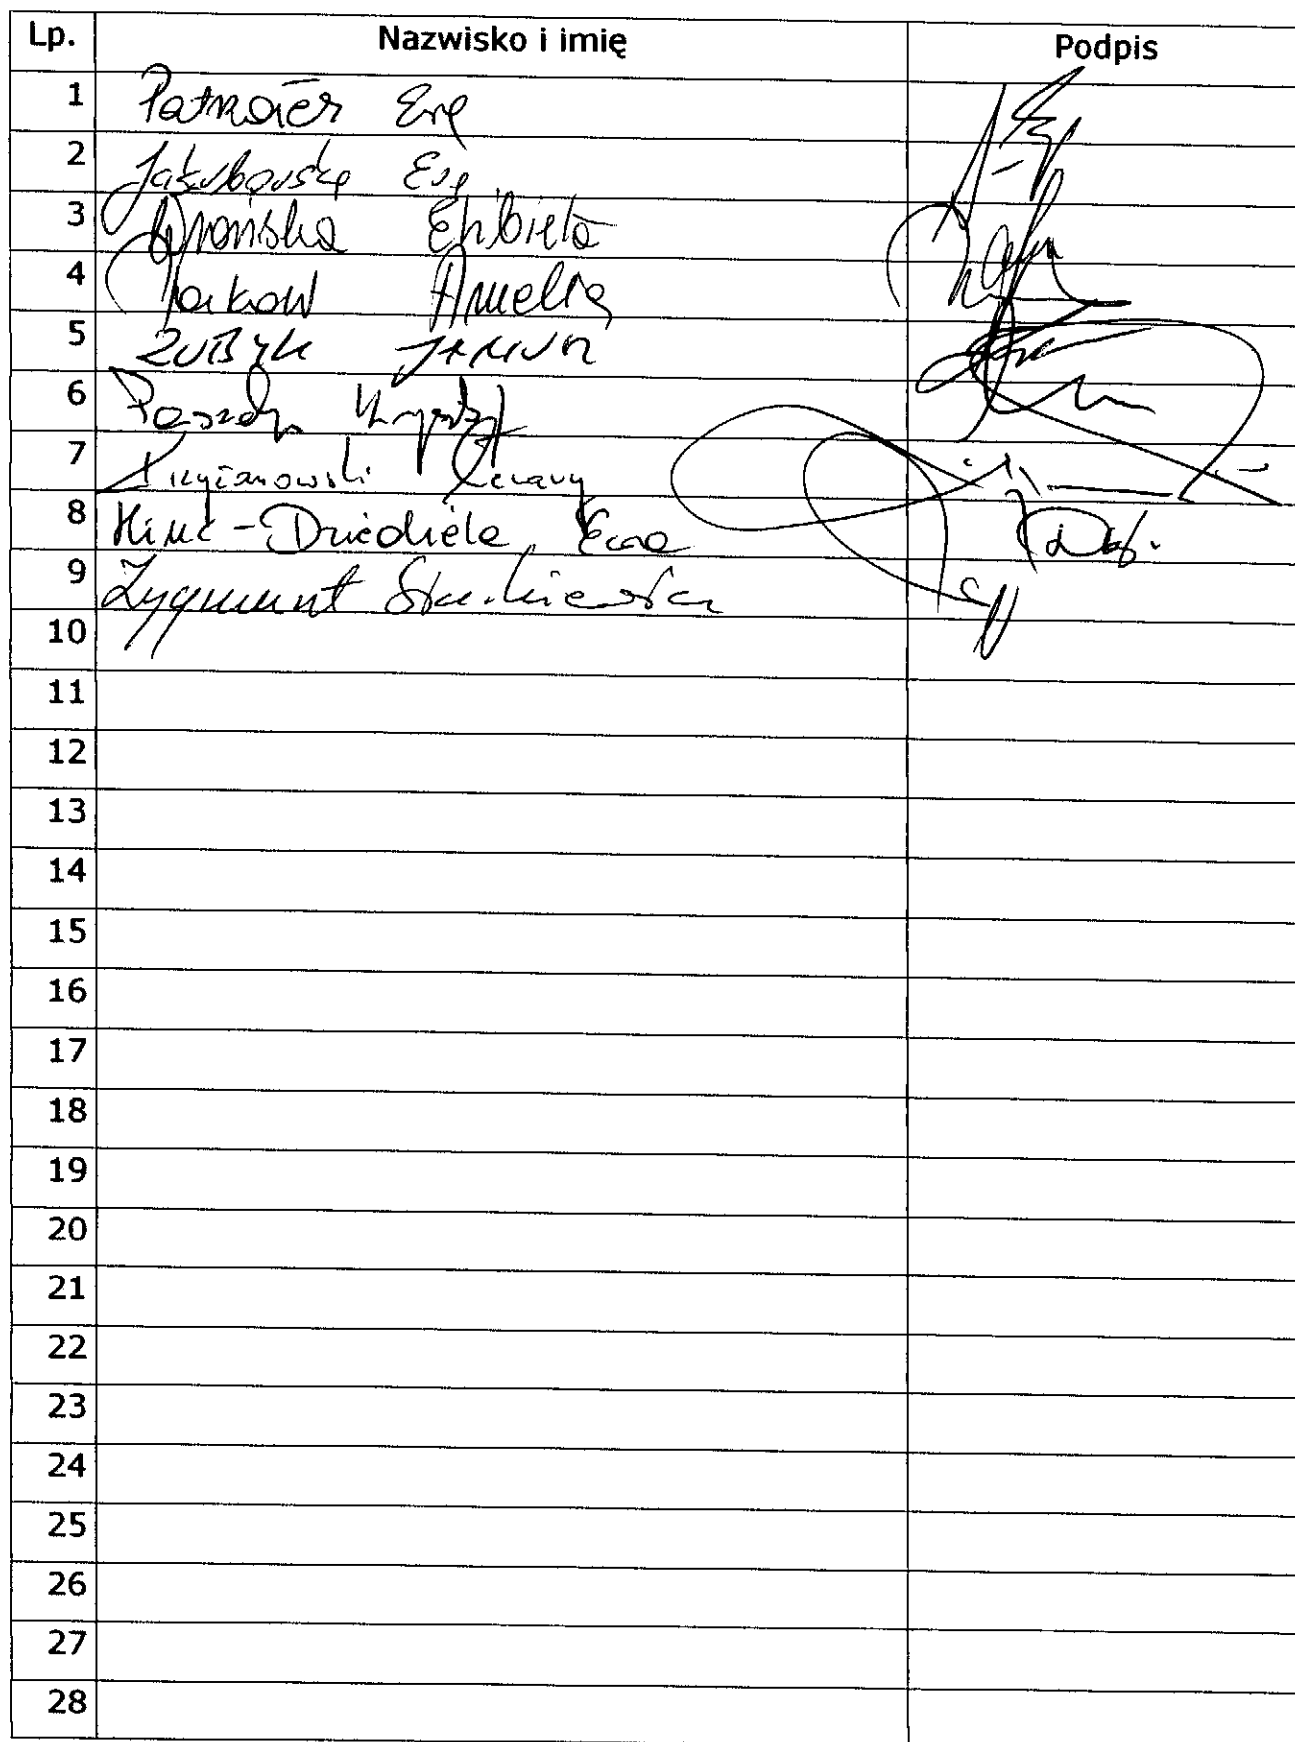 Lp. Nazwisko i imię Podpis
1 Ewa
2 Jakubowska Ewa
3 Wrońska Elżbieta
4 Amelia
5 ZUBYK JANUSZ
6
7 Krzyżanowski Cezary
8 Hinc-Dziedziela Ewa
9 Zygmunt Stankiewicz
10
11
12
13
14
15
16
17
18
19
20
21
22
23
24
25
26
27
28